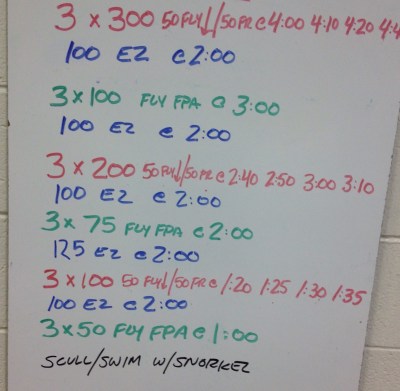 3 x 300 50 FLY↓/50 FR @ 4:00 4:10 4:20 4:4
100 EZ @ 2:00
3 x 100 FLY FPA @ 3:00
100 EZ @ 2:00
3 x 200 50 FLY↓/50 FR @ 2:40 2:50 3:00 3:10
100 EZ @ 2:00
3 x 75 FLY FPA @ 2:00
125 EZ @ 2:00
3 x 100 50 FLY↓/50 FR @ 1:20 1:25 1:30 1:35
100 EZ @ 2:00
3 x 50 FLY FPA @ 1:00
SCULL/SWIM W/SNORKEL